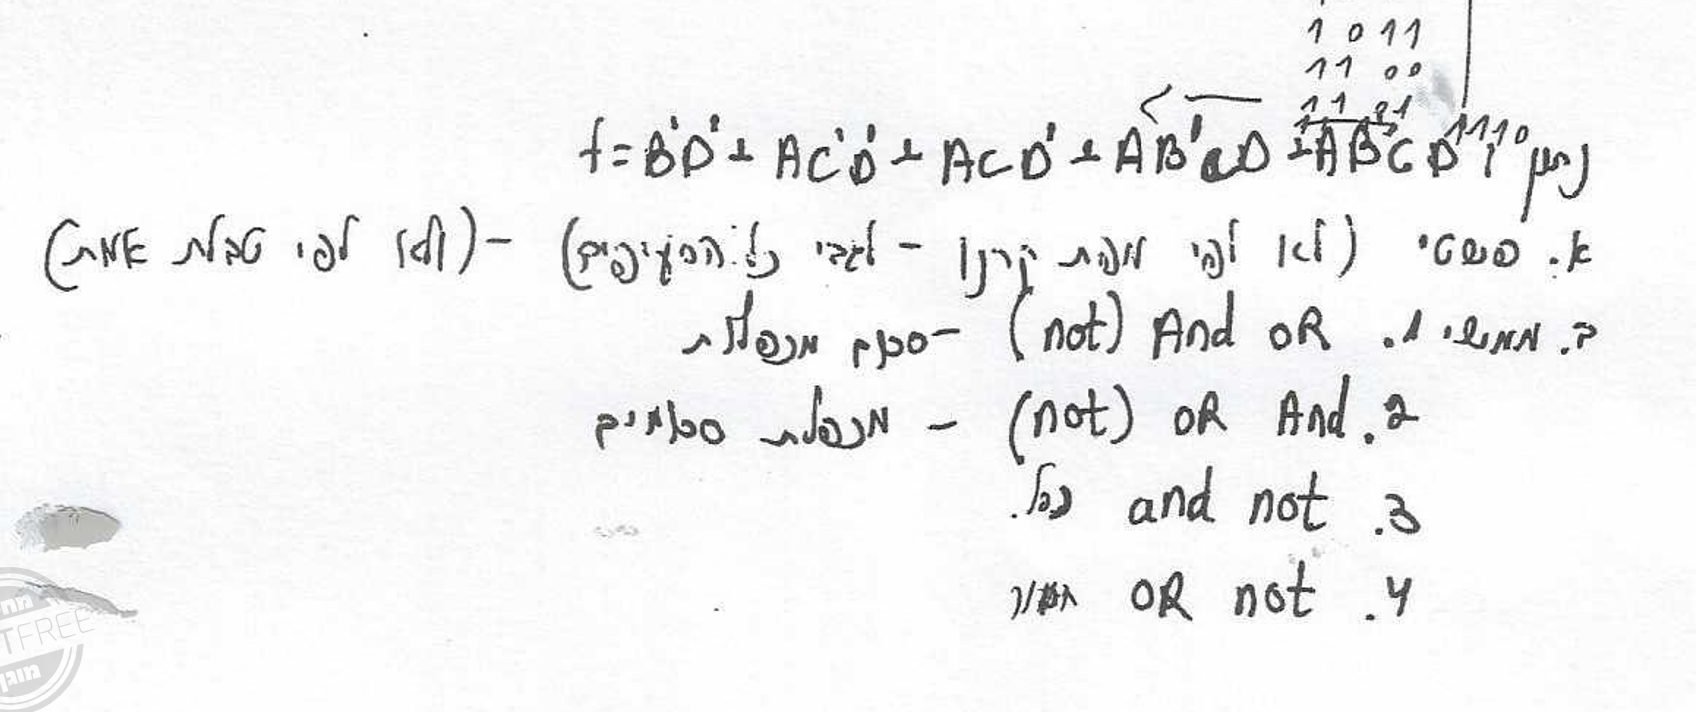 1 0 11
11 00
11 01
1110
נתון f = B'D' + AC'D' + ACD' + AB'CD + AB'CD'
א. פשטי (לא לפי מפת קרנו - לגבי כל הסעיפים) - (ולא לפי טבלת אמת)
ב. ממשי 1. (not) And OR - סכום מכפלות
2. (not) OR And - מכפלת סכומים
3. and not
4. OR not